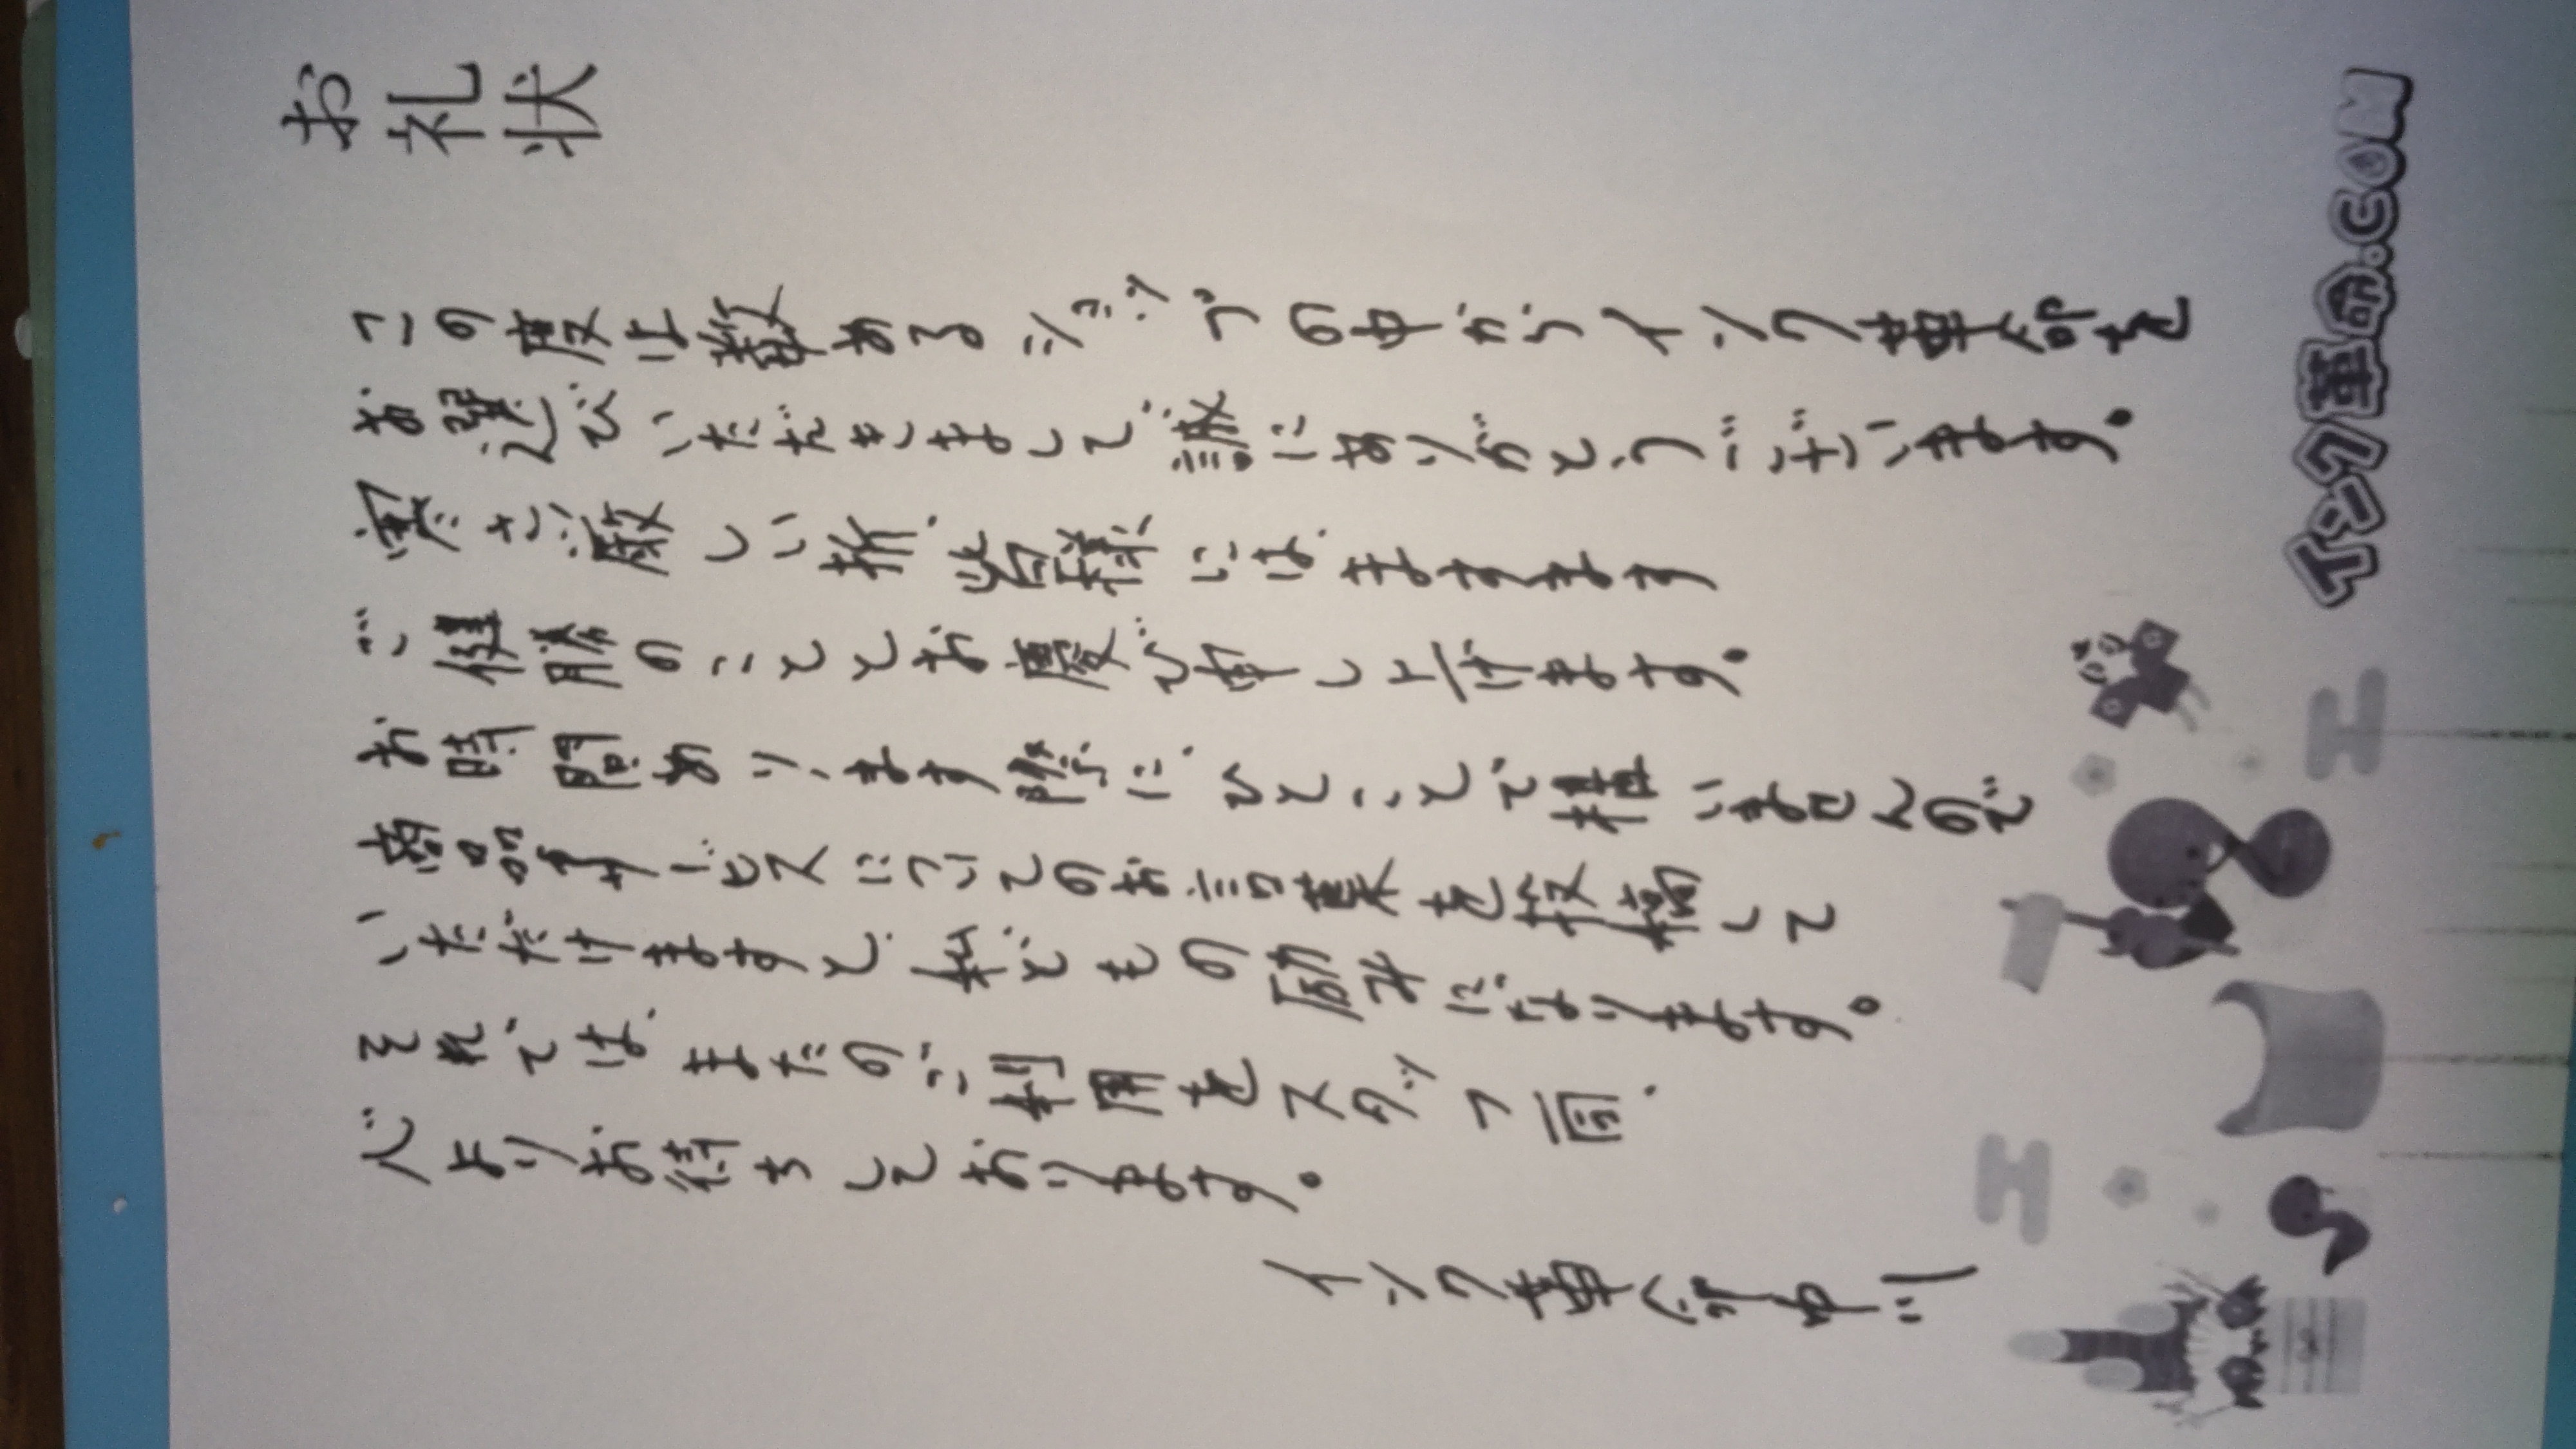 お礼状
この度は数あるショップの中からインク革命を
お選びいただきまして誠にありがとうございます。
寒さ厳しい折、皆様にはますます
ご健勝のこととお慶び申し上げます。
お時間あります際に、ひとことで構いませんので
商品サービスについてのお言葉を投稿して
いただけますと、私どもの励みになります。
それでは、またのご利用をスタッフ一同、
心よりお待ちしております。
インク革命
インク革命.COM